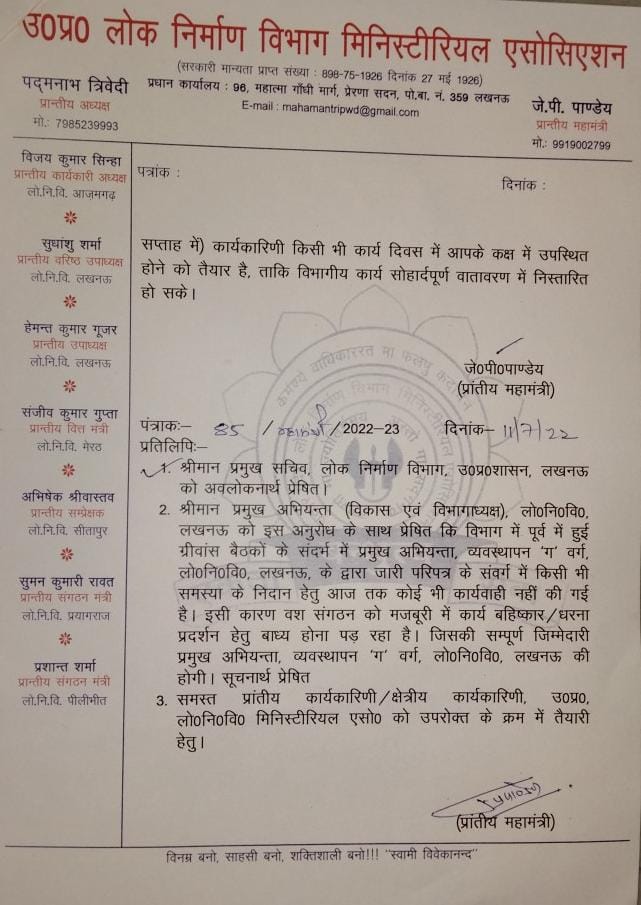 उ0प्र0 लोक निर्माण विभाग मिनिस्टीरियल एसोसिएशन
(सरकारी मान्यता प्राप्त संख्या : 898-75-1926 दिनांक 27 मई 1926)
प्रधान कार्यालय : 96, महात्मा गाँधी मार्ग, प्रेरणा सदन, पो.बा. नं. 359 लखनऊ
E-mail : mahamantripwd@gmail.com
पद्मनाभ त्रिवेदी
प्रान्तीय अध्यक्ष
मो.: 7985239993
जे.पी. पाण्डेय
प्रान्तीय महामंत्री
मो.: 9919002799
विजय कुमार सिन्हा
प्रान्तीय कार्यकारी अध्यक्ष
लो.नि.वि. आज़मगढ़
सुधांशु शर्मा
प्रान्तीय वरिष्ठ उपाध्यक्ष
लो.नि.वि. लखनऊ
हेमन्त कुमार गूजर
प्रान्तीय उपाध्यक्ष
लो.नि.वि. लखनऊ
संजीव कुमार गुप्ता
प्रान्तीय वित्त मंत्री
लो.नि.वि. मेरठ
अभिषेक श्रीवास्तव
प्रान्तीय सम्प्रेक्षक
लो.नि.वि. सीतापुर
सुमन कुमारी रावत
प्रान्तीय संगठन मंत्री
लो.नि.वि. प्रयागराज
प्रशान्त शर्मा
प्रान्तीय संगठन मंत्री
लो.नि.वि. पीलीभीत
पत्रांक :
दिनांक :
सप्ताह में) कार्यकारिणी किसी भी कार्य दिवस में आपके कक्ष में उपस्थित
होने को तैयार है, ताकि विभागीय कार्य सोहार्दपूर्ण वातावरण में निस्तारित
हो सके।
जे0पी0पाण्डेय
(प्रांतीय महामंत्री)
पंत्राकः- 85 / महामंत्री /2022-23 दिनांक- 11/7/22
प्रतिलिपिः-
1. श्रीमान प्रमुख सचिव, लोक निर्माण विभाग, उ0प्र0शासन, लखनऊ
को अवलोकनार्थ प्रेषित।
2. श्रीमान प्रमुख अभियन्ता (विकास एवं विभागाध्यक्ष), लो0नि0वि0,
लखनऊ को इस अनुरोध के साथ प्रेषित कि विभाग में पूर्व में हुई
ग्रीवांस बैठकों के संदर्भ में प्रमुख अभियन्ता, व्यवस्थापन 'ग' वर्ग,
लो0नि0वि0, लखनऊ, के द्वारा जारी परिपत्र के संवर्ग में किसी भी
समस्या के निदान हेतु आज तक कोई भी कार्यवाही नहीं की गई
है। इसी कारण वश संगठन को मजबूरी में कार्य बहिष्कार/धरना
प्रदर्शन हेतु बाध्य होना पड़ रहा है। जिसकी सम्पूर्ण जिम्मेदारी
प्रमुख अभियन्ता, व्यवस्थापन 'ग' वर्ग, लो0नि0वि0, लखनऊ की
होगी। सूचनार्थ प्रेषित
3. समस्त प्रांतीय कार्यकारिणी/क्षेत्रीय कार्यकारिणी, उ0प्र0,
लो0नि0वि0 मिनिस्टीरियल एसो0 को उपरोक्त के क्रम में तैयारी
हेतु।
(प्रांतीय महामंत्री)
विनम्र बनो, साहसी बनो, शक्तिशाली बनो!!! "स्वामी विवेकानन्द"